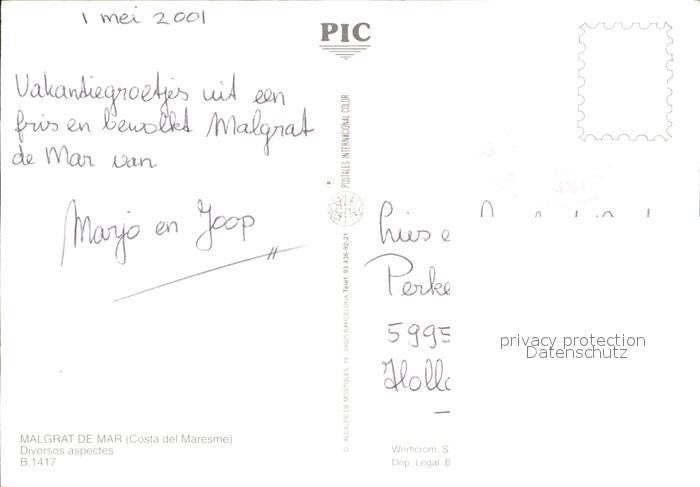 1 mei 2001
PIC
Vakantiegroetjes uit een
fris en bewolkt Malgrat
de Mar van
Marjo en Joop
POSTALES INTERNACIONAL COLOR
Lies e
Perke
5995
Holla
privacy protection
Datenschutz
C. ALCALDE DE MOSTOLES, 19 BARCELONA Telef. 93 436-92-21
MALGRAT DE MAR (Costa del Maresme)
Diversos aspectes
B.1417
Werticrom, S
Dep. Legal. B